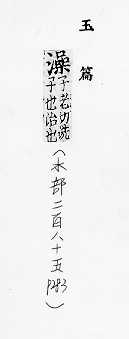 玉篇
澡
子老切洗
手也治也
(水部二百八十五 P283)